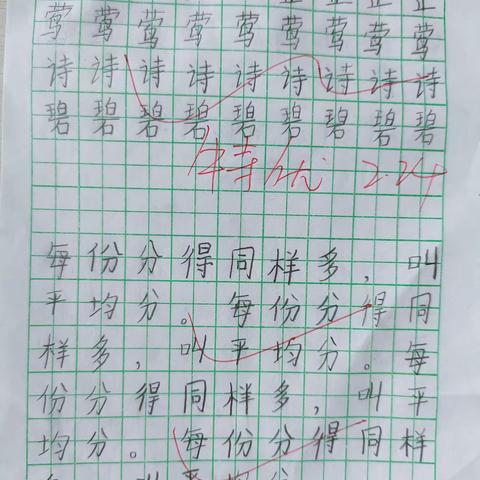 莺莺莺莺莺莺莺莺莺
诗诗诗诗诗诗诗诗诗
碧碧碧碧碧碧碧碧碧
特优 2.24
每份分得同样多，叫
平均分。每份分得同
样多，叫平均分。每
份分得同样多，叫平
均分。每份分得同样